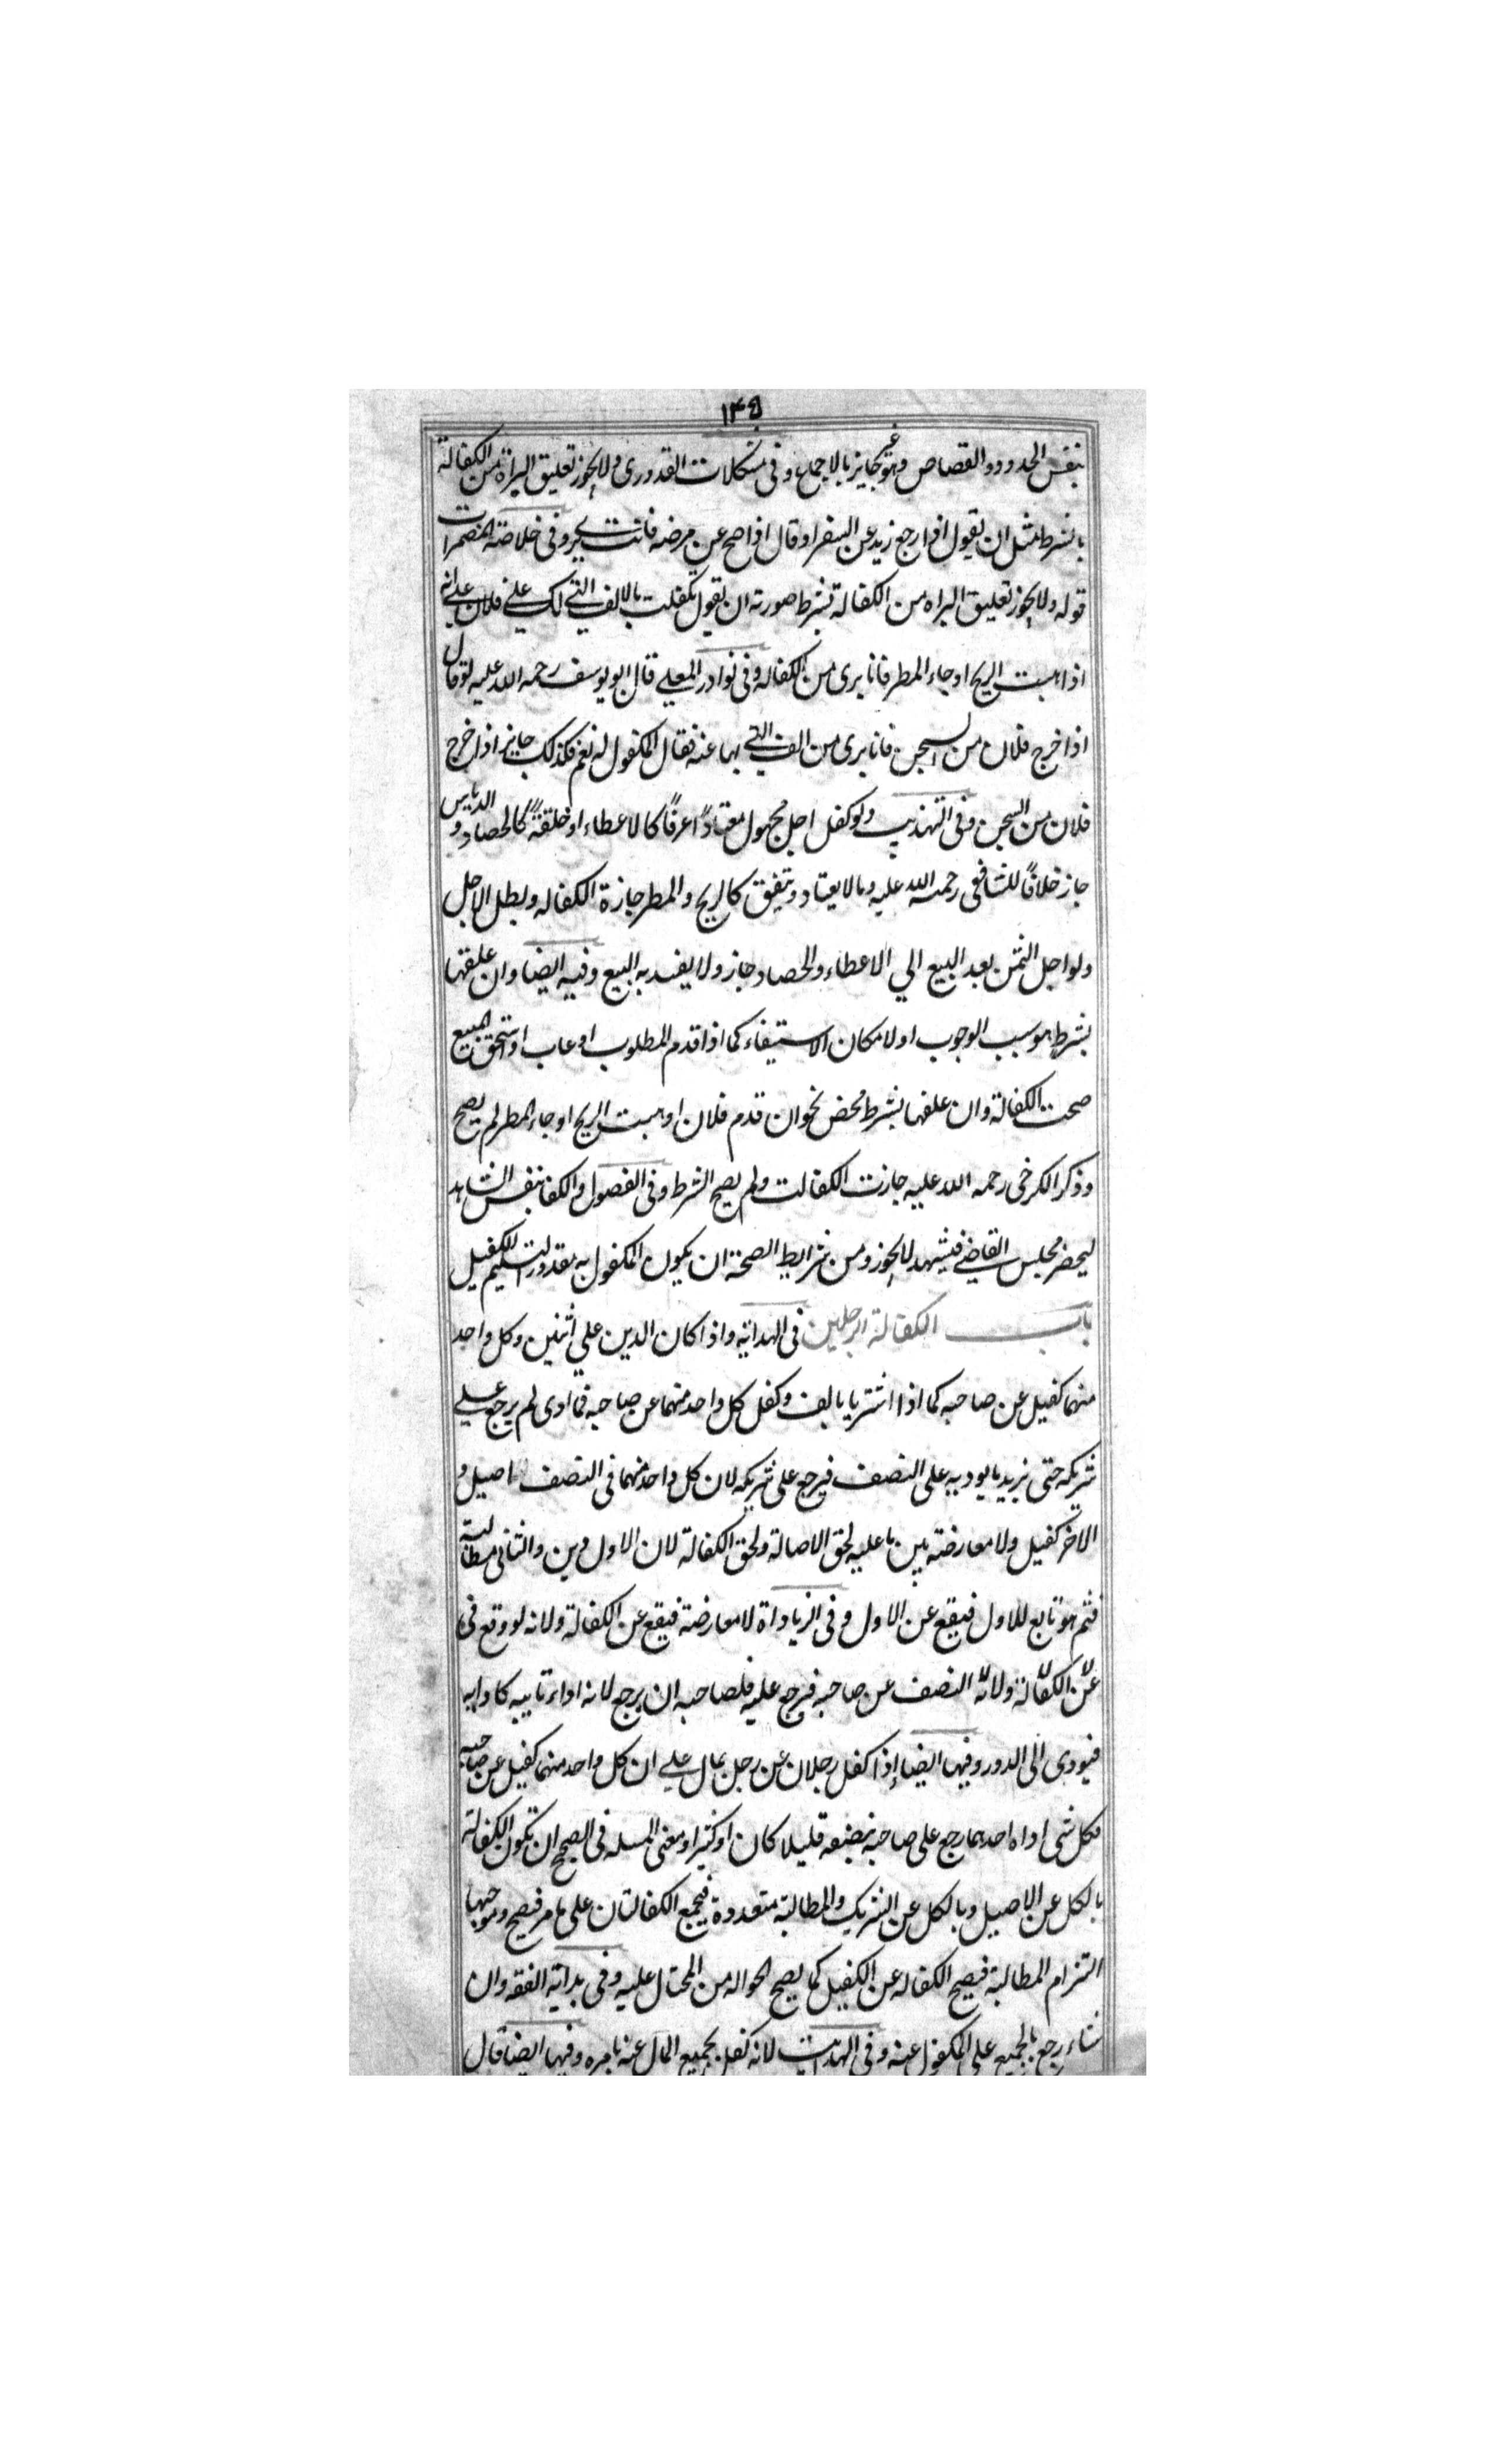 ۱۴۵
بنفس الحدود والقصاص وهو غير جايز بالاجماع وفى مشكلات القدورى ولا يجوز تعليق البراة من الكفالة
بالشرط مثل ان يقول اذا رجع زيد عن السفر او قال اذا صح عن مرضه فانت برى وفى خلاصة المضمرات
قوله ولا يجوز تعليق البراه من الكفالة بشرط صورته ان يقول تكفلت بالالف التي لك علي فلان علي انه
اذا هبت الريح او جاء المطر فانا برى من الكفاله وفى نوادر المعلي قال ابو يوسف رحمه الله عليه لو قال
اذا خرج فلان من السجن فانا برى من الف التي لها عنه فقال المكفول له نعم فكذلك جايز اذا خرج
فلان من السجن وفى التهذيب ولو كفل اجل مجهول معتادًا عرفًا كالاعطاء او خلقةً كالحصاد و الدياس
جاز خلافًا للشافعى رحمه الله عليه وما لا يعتاد ويتفق كالريح والمطر جازة الكفاله وبطل الاجل
ولو اجل الثمن بعد البيع الي الاعطاء والحصاد جاز ولا يفسد به البيع وفيه ايضا وان علقها
بشرط هو سبب الوجوب او لامكان الاستيفاء كما اذا قدم المطلوب او غاب او استحق المبيع
صحت الكفالة وان علقها بشرط محض نحو ان قدم فلان او هبت الريح او جاء المطر لم يصح
وذكر الكرخى رحمه الله عليه جازت الكفالت ولم يصح الشرط وفى الفصول والكفا بنفس الشاهد
ليحضر مجلس القاضي فيشهد لا يجوز ومن شرايط الصحة ان يكون المكفول به مقدور التسليم للكفيل
باب الكفالة الرجلين فى الهداية واذا كان الدين علي اثنين وكل واحد
منهما كفيل عن صاحبه كما اذا اشتريا بالف وكفل كل واحد منهما عن صاحبه فما ادى لم يرجع علي
شريكه حتى يزيد ما يوديه على النصف فيرجع على شريكه لان كل واحد منهما فى النصف اصيل و
الاخر كفيل ولا معارضته بين ما عليه لحق الاصالة ولحق الكفالة لان الاول دين والثانى مطالبة
فثم هو تابع للاول فيقع عن الاول وفى الزياداة لا معارضة فيقع عن الكفالة ولانه لو وقع فى
عن الكفالة ولانه النصف عن صاحبه فرجع عليه فلصاحبه ان يرجع لانه اداء نايبه كادايه
فيودى الى الدور وفيها ايضا إذا كفل رجلان عن رجل بمال علي ان كل واحد منهما كفيل عن صاحبه
فكل شى اداه احدهما رجع على صاحبه بنصفه قليلا كان او كثيرا ومعنى المسله فى الصحيح ان تكون الكفالة
بالكل عن الاصيل وبالكل عن الشريك والمطالبة متعددة فيجمع الكفالتان على ما مر فيصح وموجبها
التزام المطالبة فيصح الكفاله عن الكفيل كما يصح الحواله من المحتال عليه وفى بداية الفقه وان
شاء رجع بالجميع على المكفول عنه وفى الهدايت لانه كفل بجميع المال عنه بامره وفيها ايضا قال